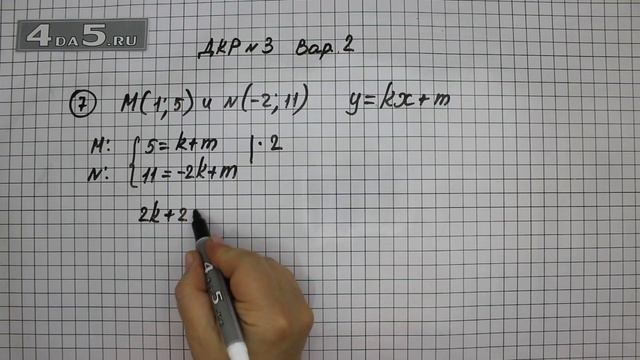 4DA5.RU
ДКР №3 Вар. 2
⑦ M(1; 5) и N(-2; 11) y=kx+m
M: { 5=k+m |·2
N: { 11=-2k+m
2k+2
4 DA 5